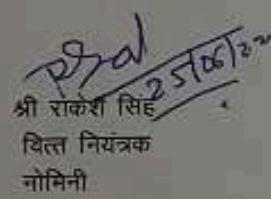 25/06/22
श्री राकेश सिंह
वित्त नियंत्रक
नोमिनी